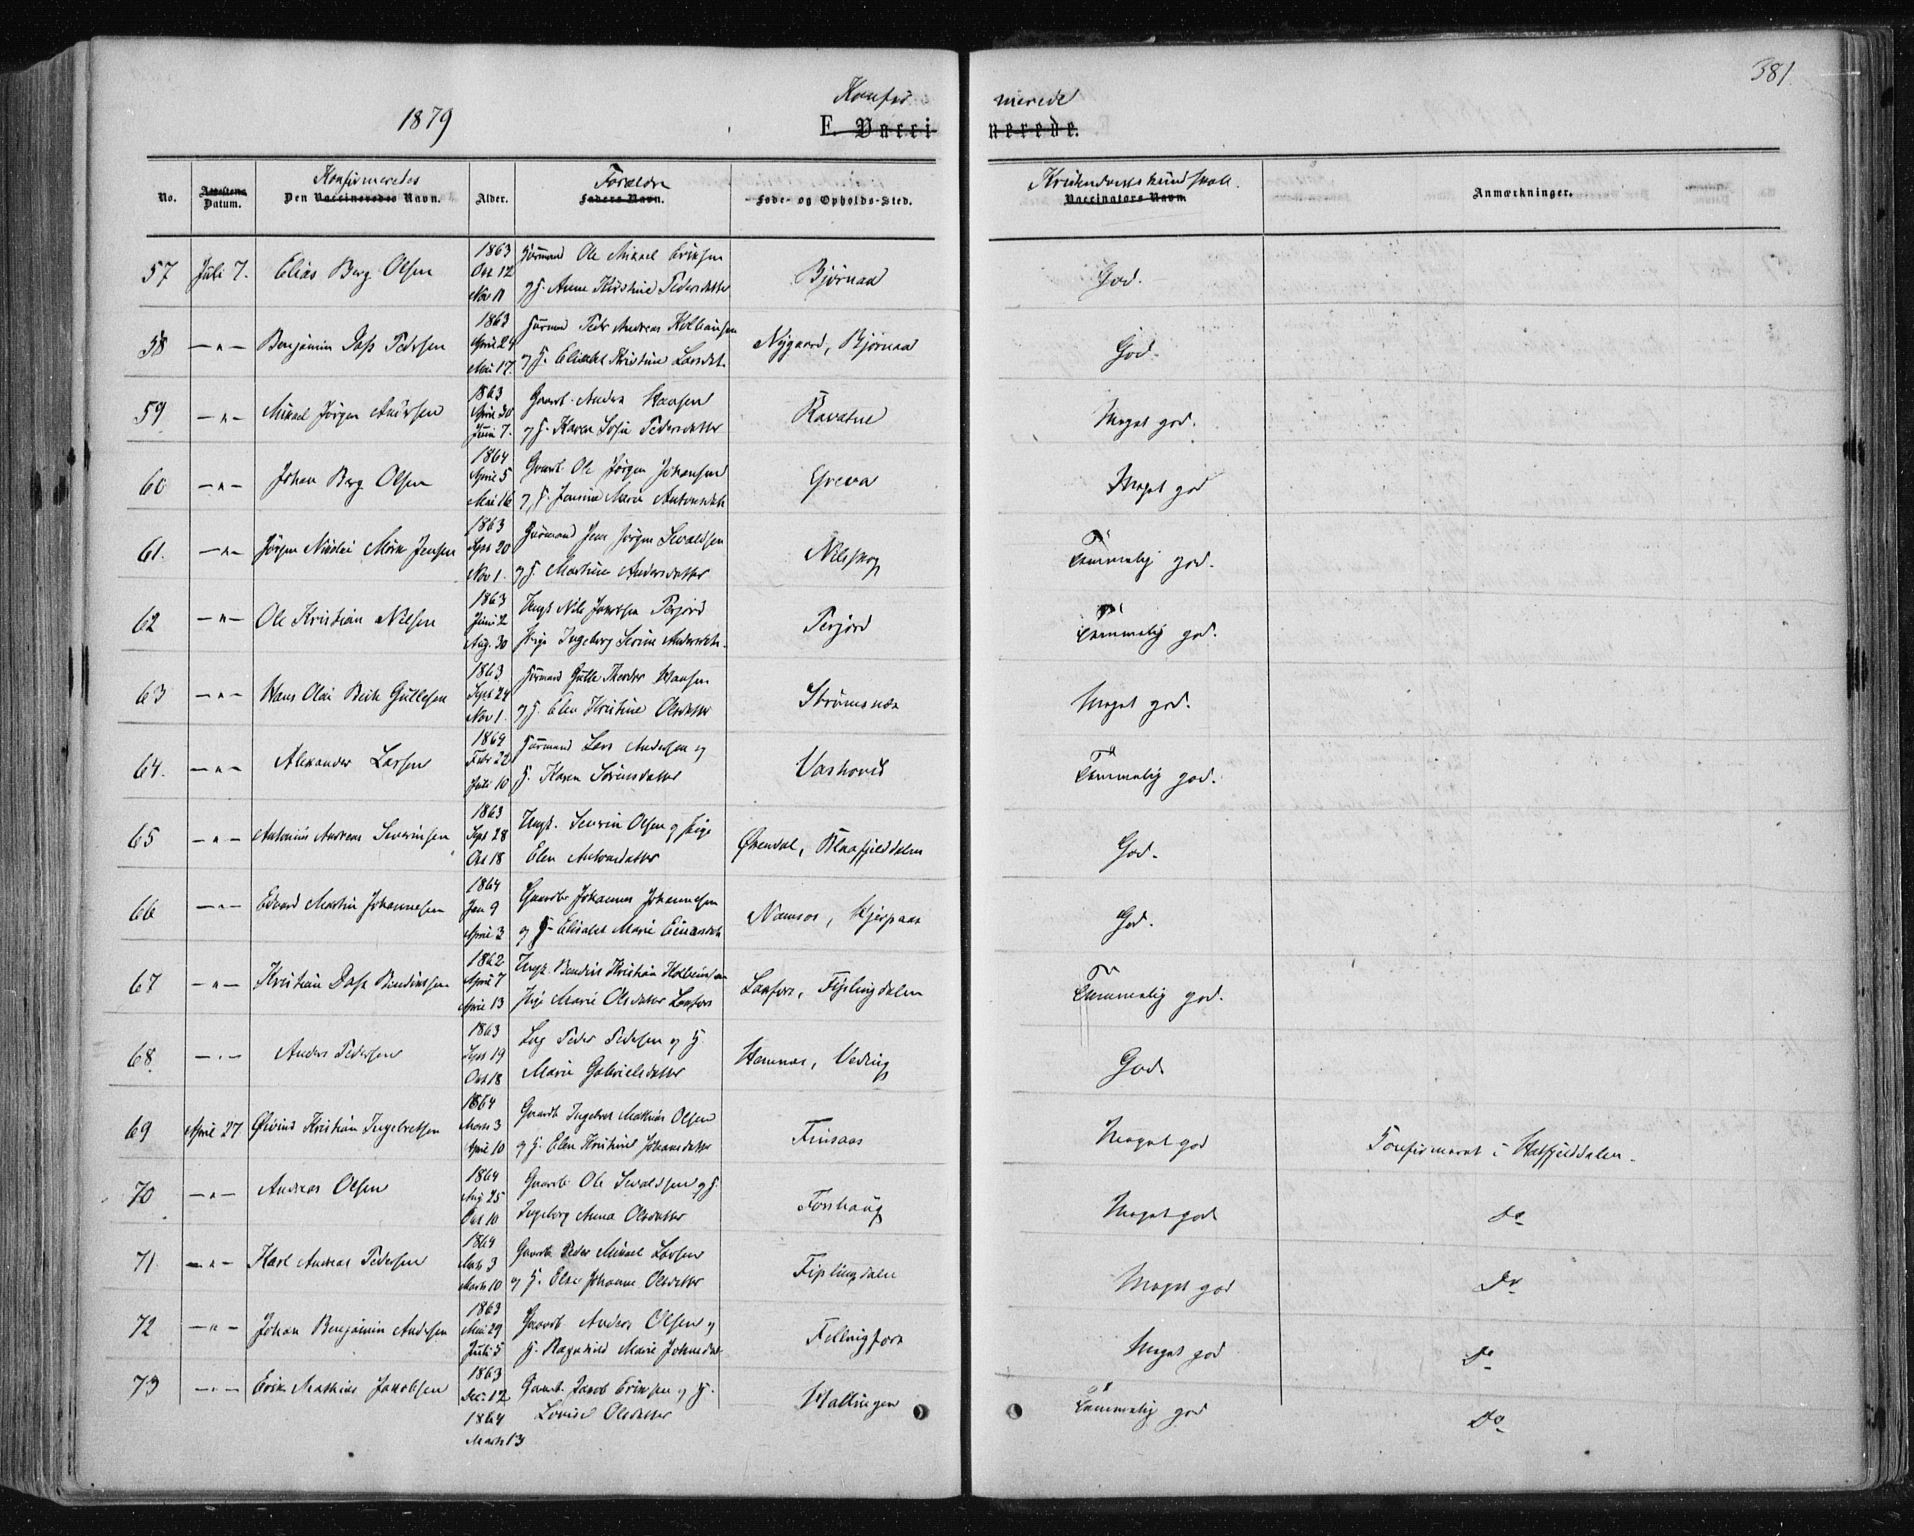 381
1879
Konfir merede
F. Vacci nerede.
No.
Attestens Datum.
Konfirmeredes
Den Vaccineredes Navn.
Alder.
Forældre
Faders Navn.
Føde- og Opholds-Sted.
Kristendomskundskab.
Vaccinators Navn
Anmærkninger.
57 Juli 7. Elias Berg Olsen 1863 Oct 12 Nov 11 Ole Mikael Eriksen
og H. Anne Kirstine Pedersdatter Bjørnaa God.
58 —"— Benjamin Dass Pedersen 1863 April 24 Mai 17. Peder Andreas
og H. Kristine Larsdat. Nygaard, Bjørnaa God.
59 —"— Mikael Jørgen Andersen 1863 April 30 Juni 7. Gaardb. Anders Hansen
og H. Karen Sofie Pedersdatter Ravatne Meget god.
60 —"— Johan Berg Olsen 1864 April 5 Mai 16 Gaardb. Ole Jørgen Johansen
og H. Marie Antonsdatr Greva Meget god
61. —"— Jørgen Nicolai Mørk Jensen 1863 Sept 20 Nov 1. Jens Jørgen Sevaldsen
og H. Martine Andersdatter Nilsskog Temmelig god.
62 —"— Ole Kristian Nilsen 1863 Juni 2 Aug. 30 Ungk. Nils Jakobsen Perjord
Pige Ingeborg Andersdatr. Perjord Temmelig god.
63 —"— Hans Olai Gullesen 1863 Sept 24 Nov 1. Gulle Hansen
og H. Elen Kristine Olsdatter Strømsnæs Meget god.
64. —"— Alexander Larsen 1864 Febr 22 Juli 10 Lars Andersen og
H. Karen Sørensdatter Temmelig god.
65 —"— Antonius Andreas Severinsen 1863 Sept 28 Oct 18 Ungk. Severin Olsen og Pige
Elen Antonsdatter Øxendal, Blaafjelddalen God.
66 —"— Edvard Martin Johannesen 1864 Jan 9 April 3 Gaardbr Johannes Johannesen
og H. Elisabet Marie Namsos, God.
67 —"— Kristian Dass Bendiksen 1862 April 7 April 13 Ungk. Kristian
Pige Marie Olsdatter Laxfors Laxfors, Fiplingdalen Temmelig god.
68. —"— Anders Pedersen 1863 Sept 19 Oct 18 Peder Pedersen og H.
Marie Gabrielsdatter Hemnæs, God.
69 April 27 Øivind Kristian Ingebretsen 1864 Marts 3 April 10 Gaardb Ingebret Mathias Olsen
og H. Elen Kristine Johansdatter Finsaas Meget god Confirmeret i Hatfjelddalen.
70 —"— Andreas Olsen 1864 Aug 25 Oct 10 Gaardb. Ole Sevaldsen og H.
Ingeborg Anna Olsdatter Forshaug Meget god do
71 —"— Karl Andreas Pedersen 1864 Marts 3 Marts 10 Gaardb Peder Mikael Larsen
og H. Johanne Olsdatter Fiplingdalen Meget god Do
72 —"— Johan Benjamin Andersen 1863 Mai 29 Juli 5 Gaardb Anders Olsen og
H. Ragnhild Marie Fellingfors Meget god do
73 —"— Erik Mathias Jakobsen 1863 Dec. 12 1864 Marts 13 Gaardb. Jacob Eriksen og H.
Lovise Olsdatter Temmelig god Do